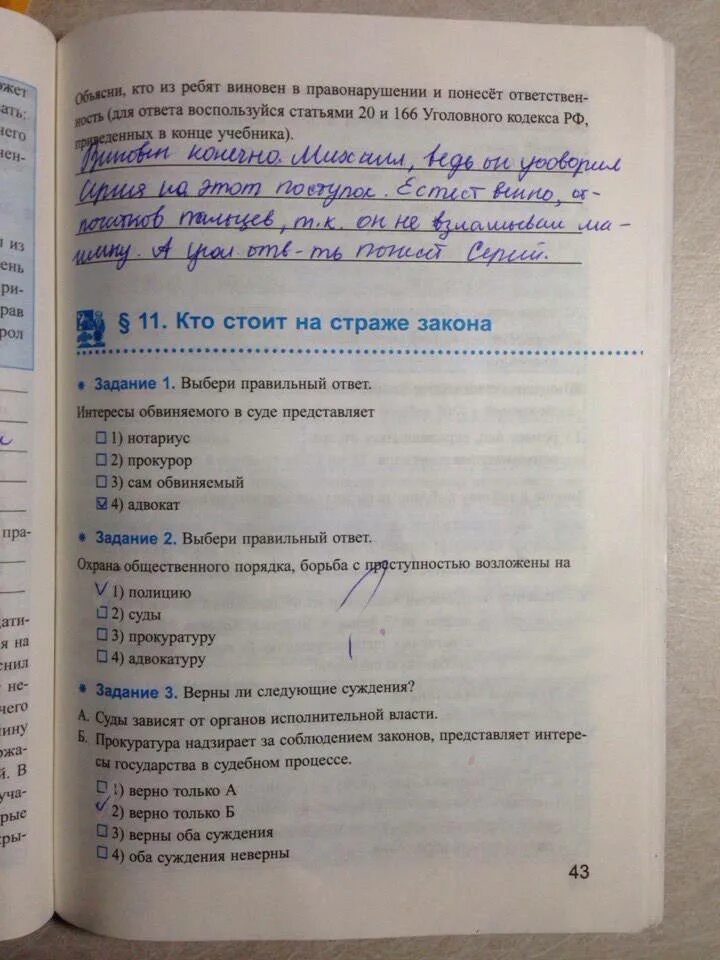 ожет
ать:
него
нен-
из
ень
ри-
рав
рол
и
пра-
дати-
я на
снил
не-
чего
ину
ржа-
й. В
уча-
орые
кры-
Объясни, кто из ребят виновен в правонарушении и понесёт ответствен-
ность (для ответа воспользуйся статьями 20 и 166 Уголовного кодекса РФ,
приведенных в конце учебника).
Виновен конечно Михаил, ведь он уговорил
на этот поступок. Естественно, от-
печатков пальцев, т.к. он не взламывал ма-
шину. А угол. отв-ть понесёт Сергей.
§ 11. Кто стоит на страже закона
Задание 1. Выбери правильный ответ.
Интересы обвиняемого в суде представляет
1) нотариус
2) прокурор
3) сам обвиняемый
4) адвокат
Задание 2. Выбери правильный ответ.
Охрана общественного порядка, борьба с преступностью возложены на
1) полицию
2) суды
3) прокуратуру
4) адвокатуру
Задание 3. Верны ли следующие суждения?
А. Суды зависят от органов исполнительной власти.
Б. Прокуратура надзирает за соблюдением законов, представляет интере-
сы государства в судебном процессе.
1) верно только А
2) верно только Б
3) верны оба суждения
4) оба суждения неверны
43